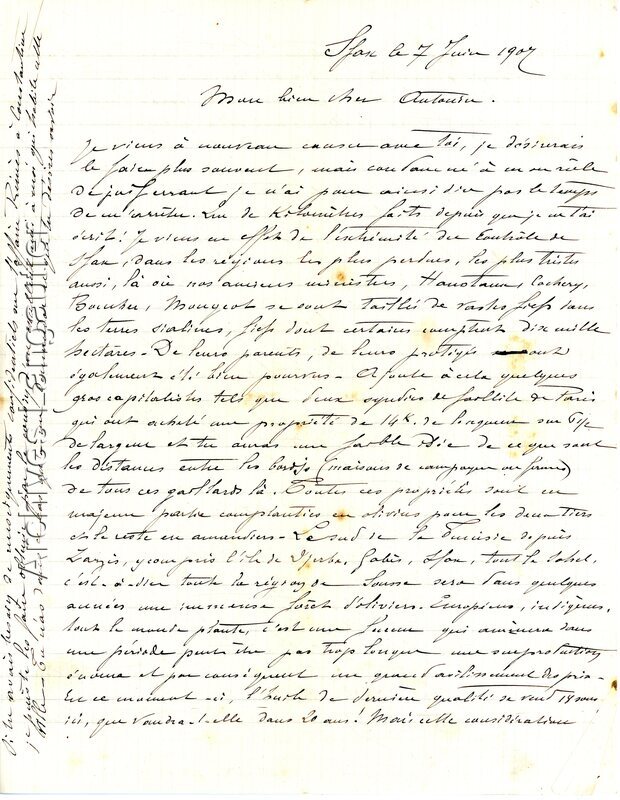 Sfax le 7 Juin 1907
Mon bien cher Antonin.
Je viens à nouveau causer avec toi, je désirerais
le faire plus souvent, mais condamné à un rôle
de juif errant je n'ai pour ainsi dire pas le temps
de m'arrêter. Que de Kilomètres faits depuis que je ne t'ai
écrit! Je viens en effet de l'extrémité du Contrôle de
Sfax, dans les régions les plus perdues, les plus tristes
aussi, là où nos anciens ministres, Hanotaux, Cochery,
Boucher, Mougeot se sont taillés de vastes fiefs dans
les terres sialines, fiefs dont certains comptent dix mille
hectares - De leurs parents, de leurs protégés ont
également été bien pourvus - Ajoute à cela quelques
gros capitalistes tels que deux syndics de faillite de Paris
qui ont acheté une propriété de 14 K. de longueur sur
de largeur et tu auras une faible idée de ce que sont
les distances entre les bordjs (maisons de campagne ou fermes)
de tous ces gaillards là. Toutes ces propriétés sont en
majeure partie complantées en oliviers pour les deux tiers
et le reste en amandiers - Le sud de la Tunisie depuis
Zarzis, y compris l'île de Djerba, Gabès, Sfax, tout le Sahel,
c'est-à-dire toute la région de Sousse sera dans quelques
années une immense forêt d'oliviers. Européens, indigènes,
tout le monde plante, c'est une fureur qui amènera dans
une période peut être pas trop longue une surproduction
énorme et par conséquent un grand avilissement des prix -
En ce moment-ci, l'huile de dernière qualité se vend 14 sous
ici, que vaudra-t-elle dans 20 ans! Mais cette considération
Si tu avais besoin de renseignements confidentiels sur à Constantine
je puis te les faire obtenir par qui habite cette
ville -